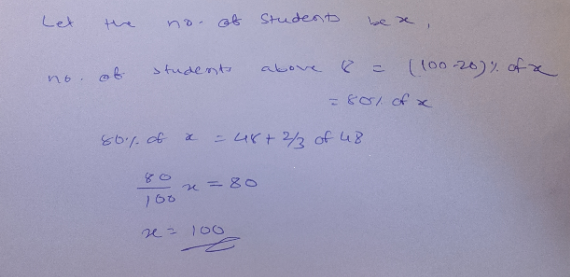 Let the no. of students be x,
no. of students above 8 = (100-20)% of x
= 80% of x
80% of x = 48 + 2/3 of 48
80/100 x = 80
x = 100